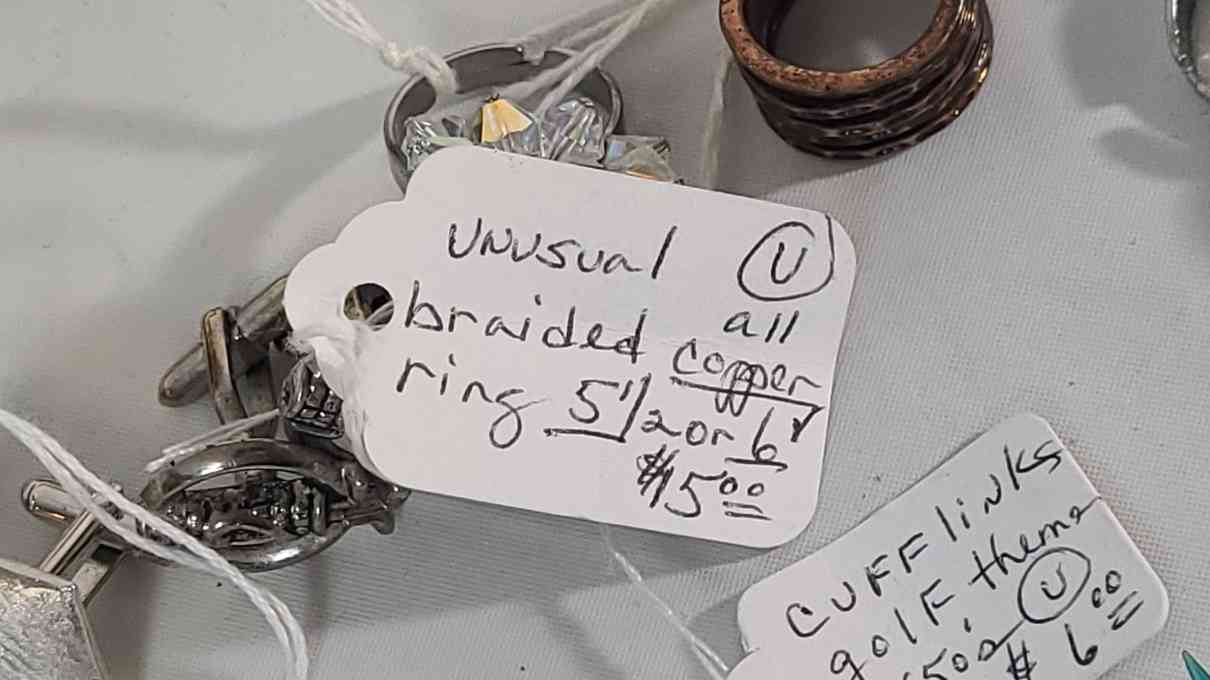 UNUSUAl U
braided all
copper
ring 5 1/2 or 6
$15.00
CUFF liNKs
golF theme
U
$ 6.00